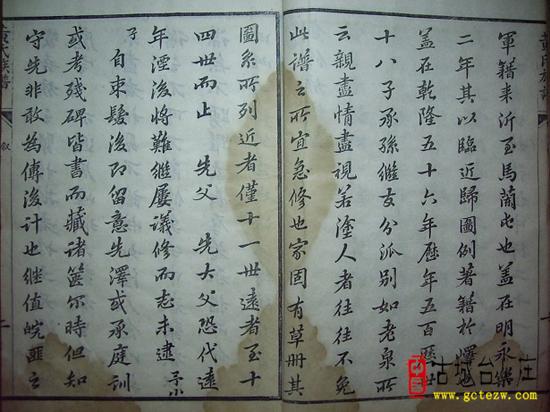 軍籍来沂至馬蘭屯也蓋在明永樂
二年其以臨近歸圖例著籍於嶧也
蓋在乾隆五十六年歷年五百歷世
十八子承孫繼支分派別如老泉所
云親盡情盡視若塗人者往往不免
此譜之所宜急修也家固有草冊其
圖系所列近者僅十一世遠者至十
四世而止 先父 先大父恐代遠
年湮後將難繼屢議修而志未逮 予小
子自束髮後即留意先澤或承庭訓
或考殘碑皆書而藏諸篋尔時但知
守先非敢為傳後計也継值皖匪之
氏族譜
叙
古城台庄
www.gctezw.com